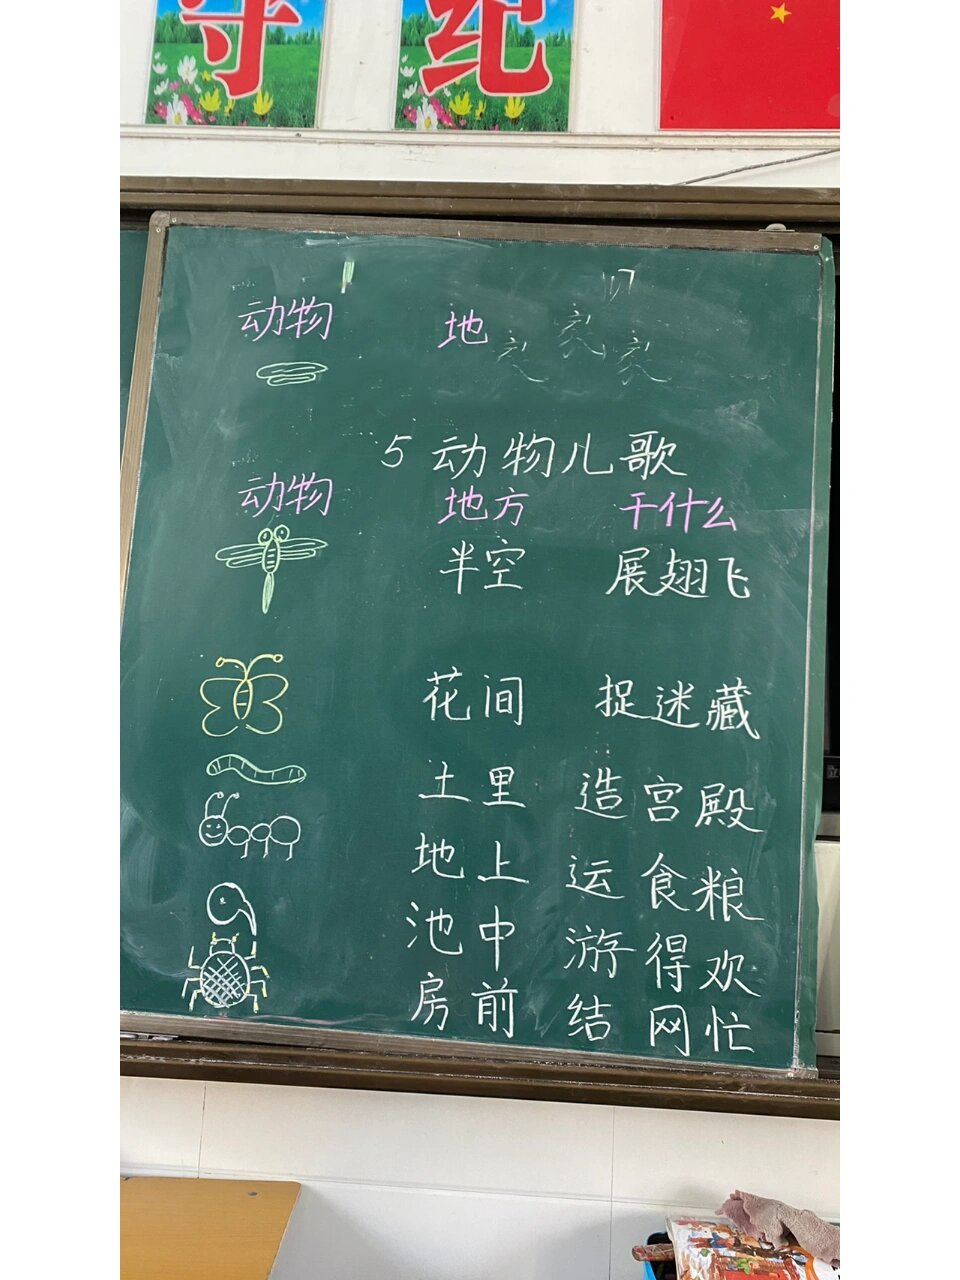 守 纪
动物 地
5 动物儿歌
动物 地方 干什么
半空 展翅飞
花间 捉迷藏
土里 造宫殿
地上 运食粮
池中 游得欢
房前 结网忙